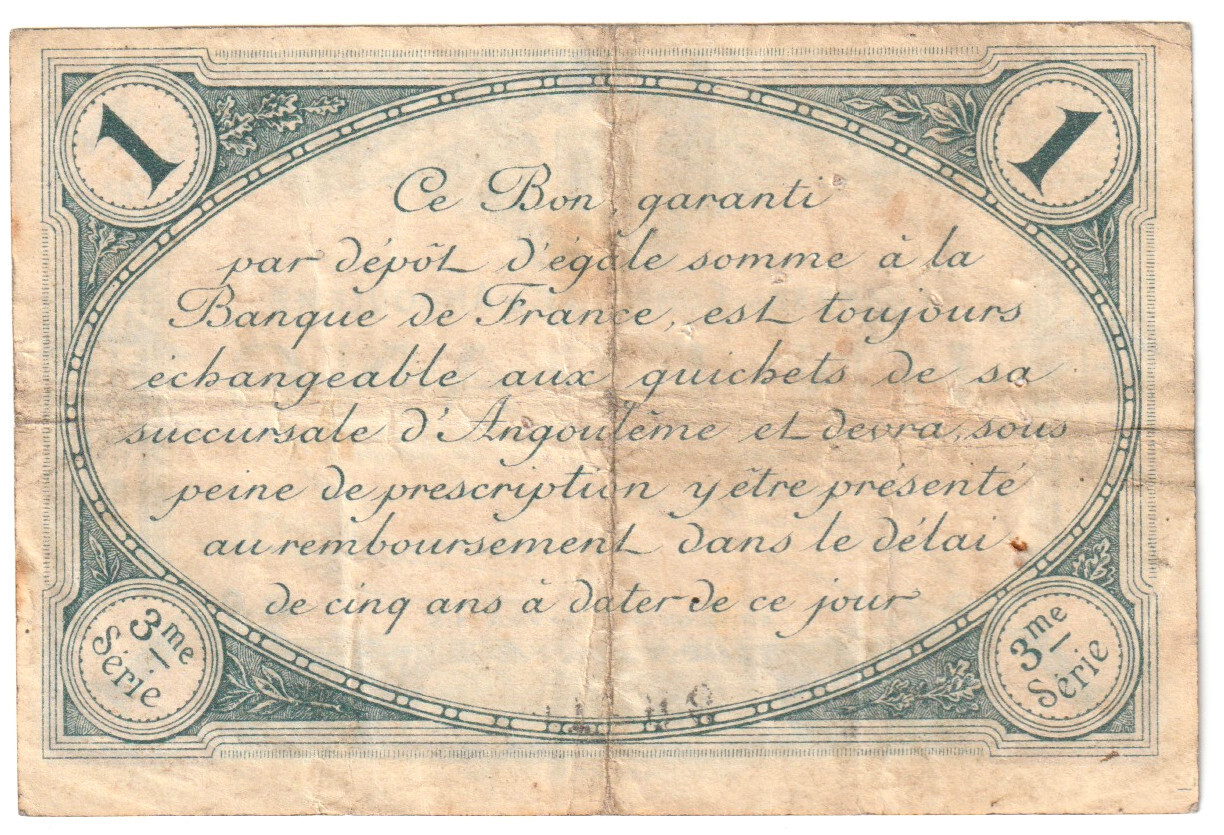 1 1
Ce Bon garanti
par dépôt d'égale somme à la
Banque de France, est toujours
échangeable aux guichets de sa
succursale d'Angoulême et devra, sous
peine de prescription y être présenté
au remboursement dans le délai
de cinq ans à dater de ce jour
3me
Série
3me
Série